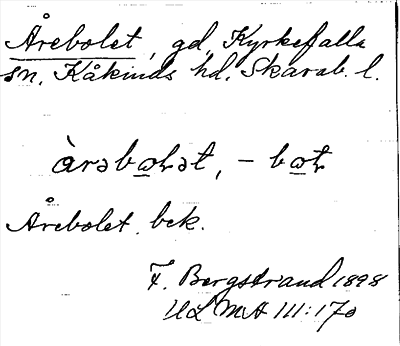 Årebolet, gd, Kyrkefalla
sn, Kåkinds hd, Skarab. l.
àrəbω̲ɫət, – bω̲ɫ
Årebolet. bek.
F. Bergstrand 1898
ULMA III:170